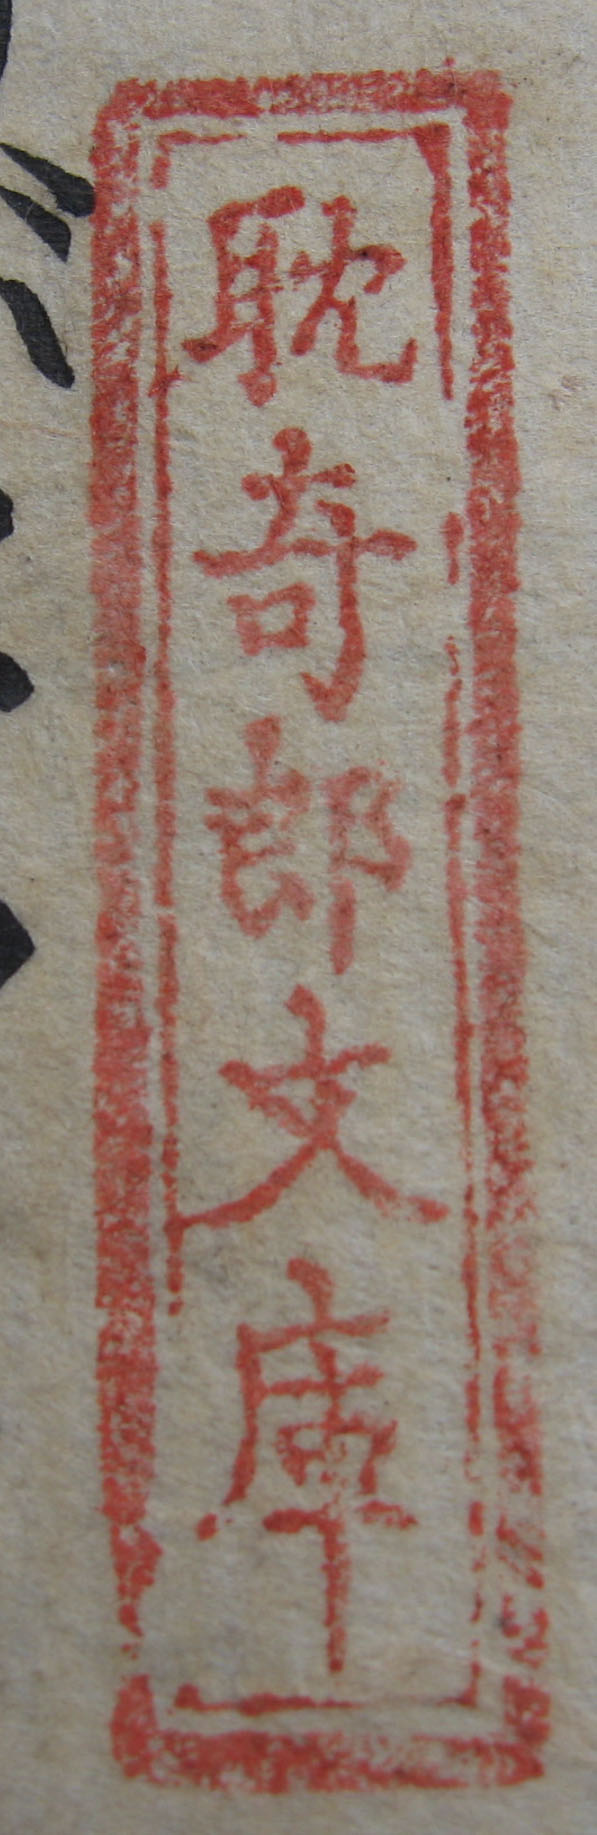 耽奇郎文庫